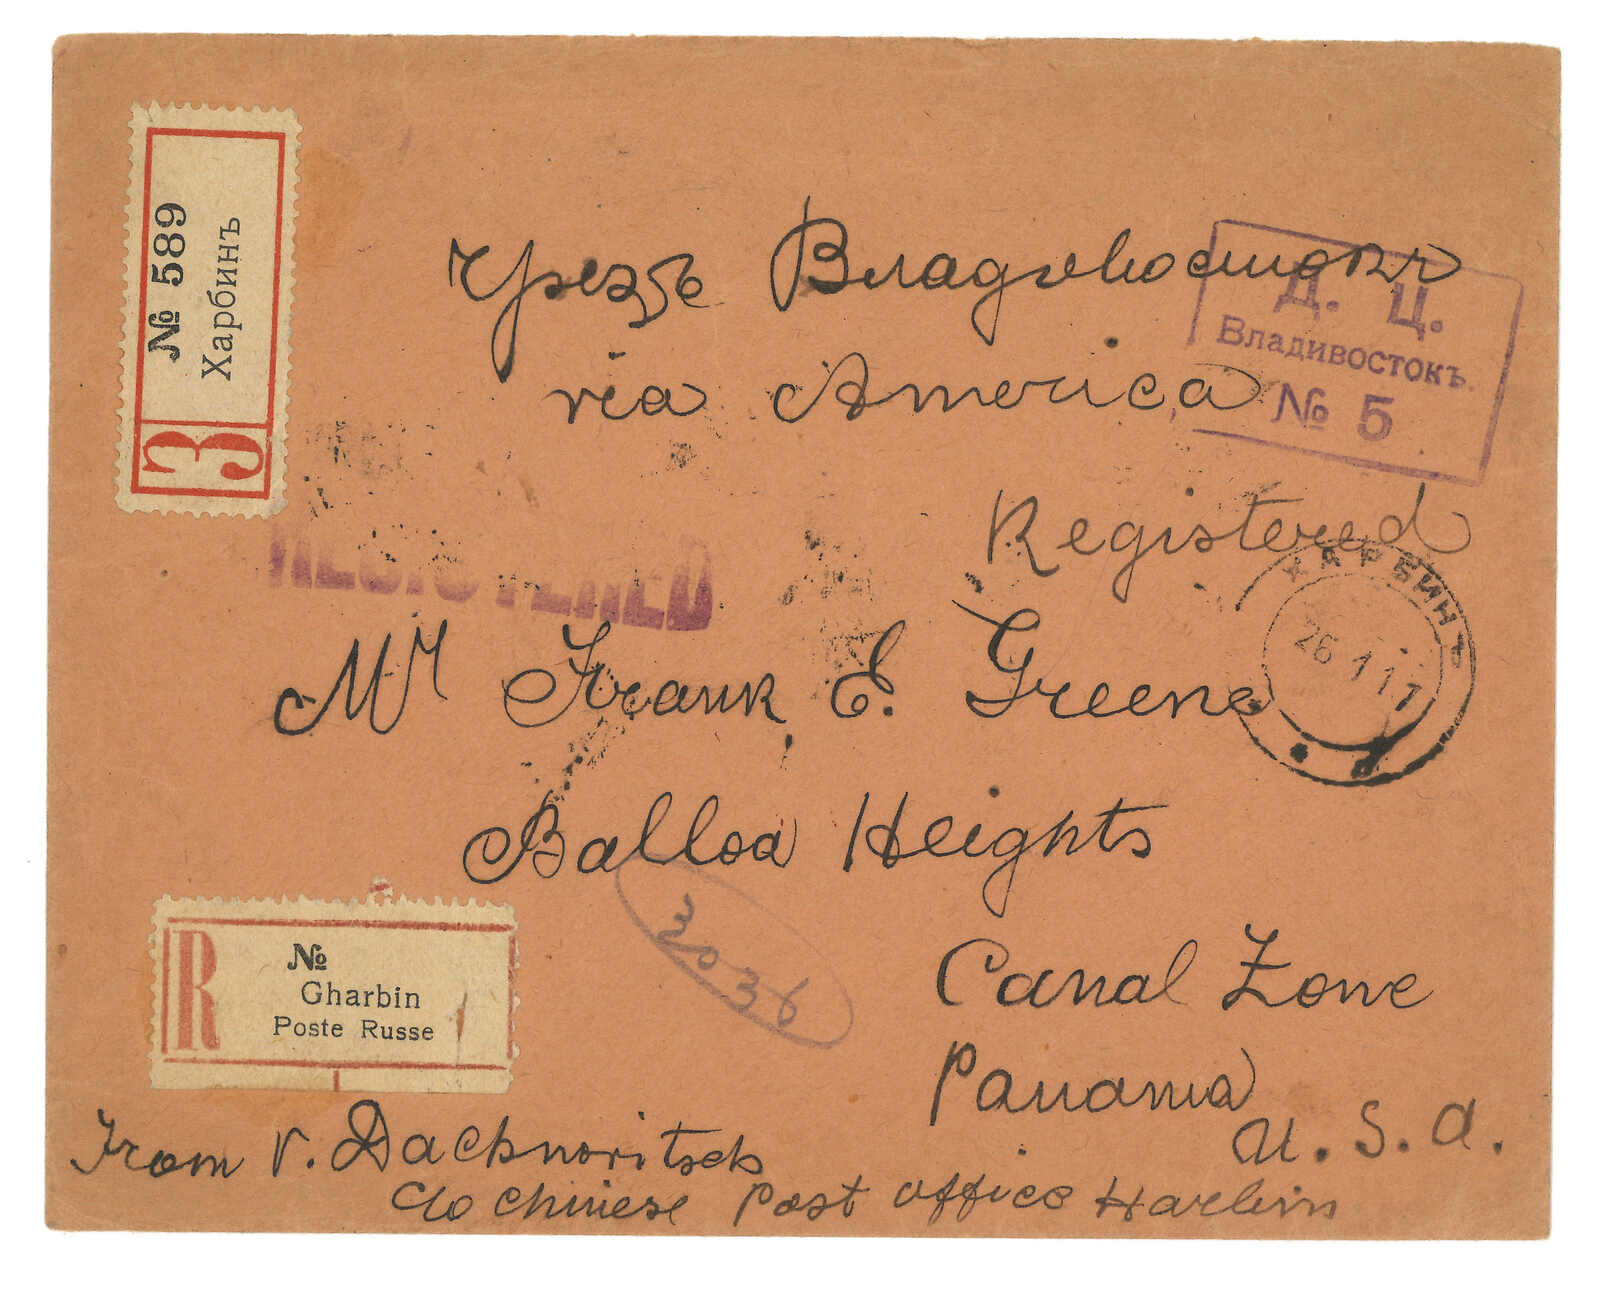 № 589
Харбинъ
З
Чрезъ Владивостокъ
via America
Д. Ц.
Владивостокъ.
№ 5
Registered
REGISTERED
ХАРБИНЪ
26 11 1
Mr Frank E. Greene
Balloa Heights
3036
Canal Zone
Panama
U. S. A.
R
№
Gharbin
Poste Russe
From V. Dachnovitsch
c/o Chinese Post Office Harbin